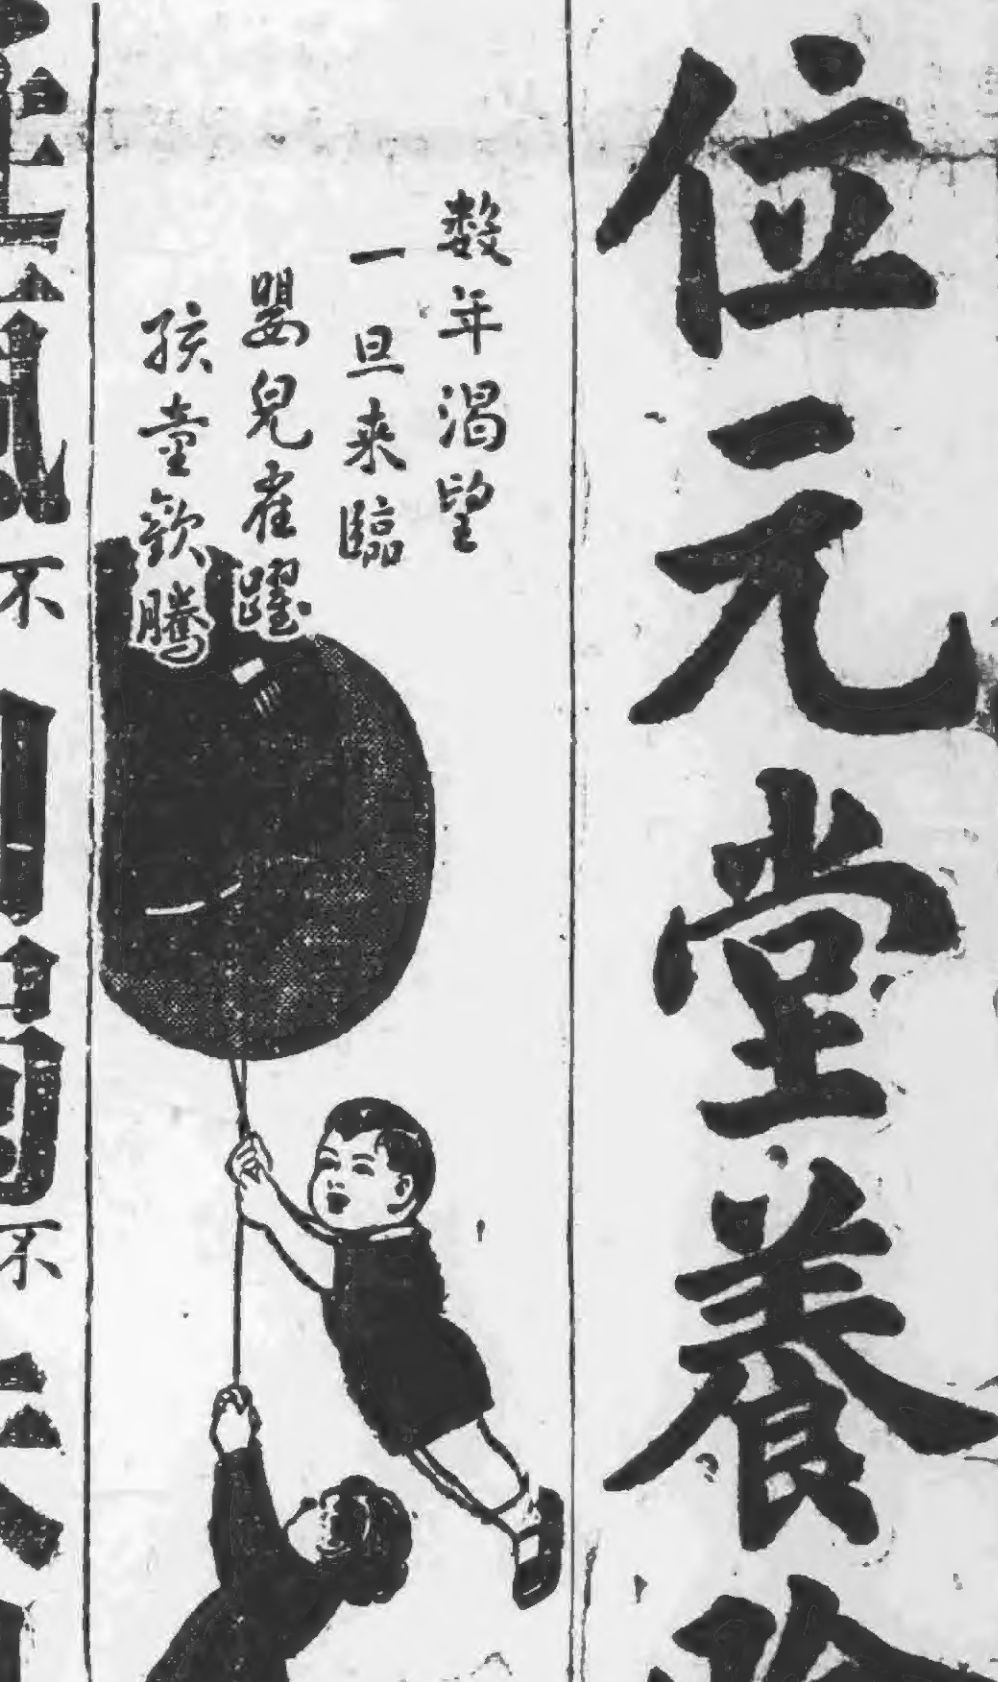 位元堂養
数年渴望
一旦来臨
嬰兒雀躍
孩童歡騰
不
不